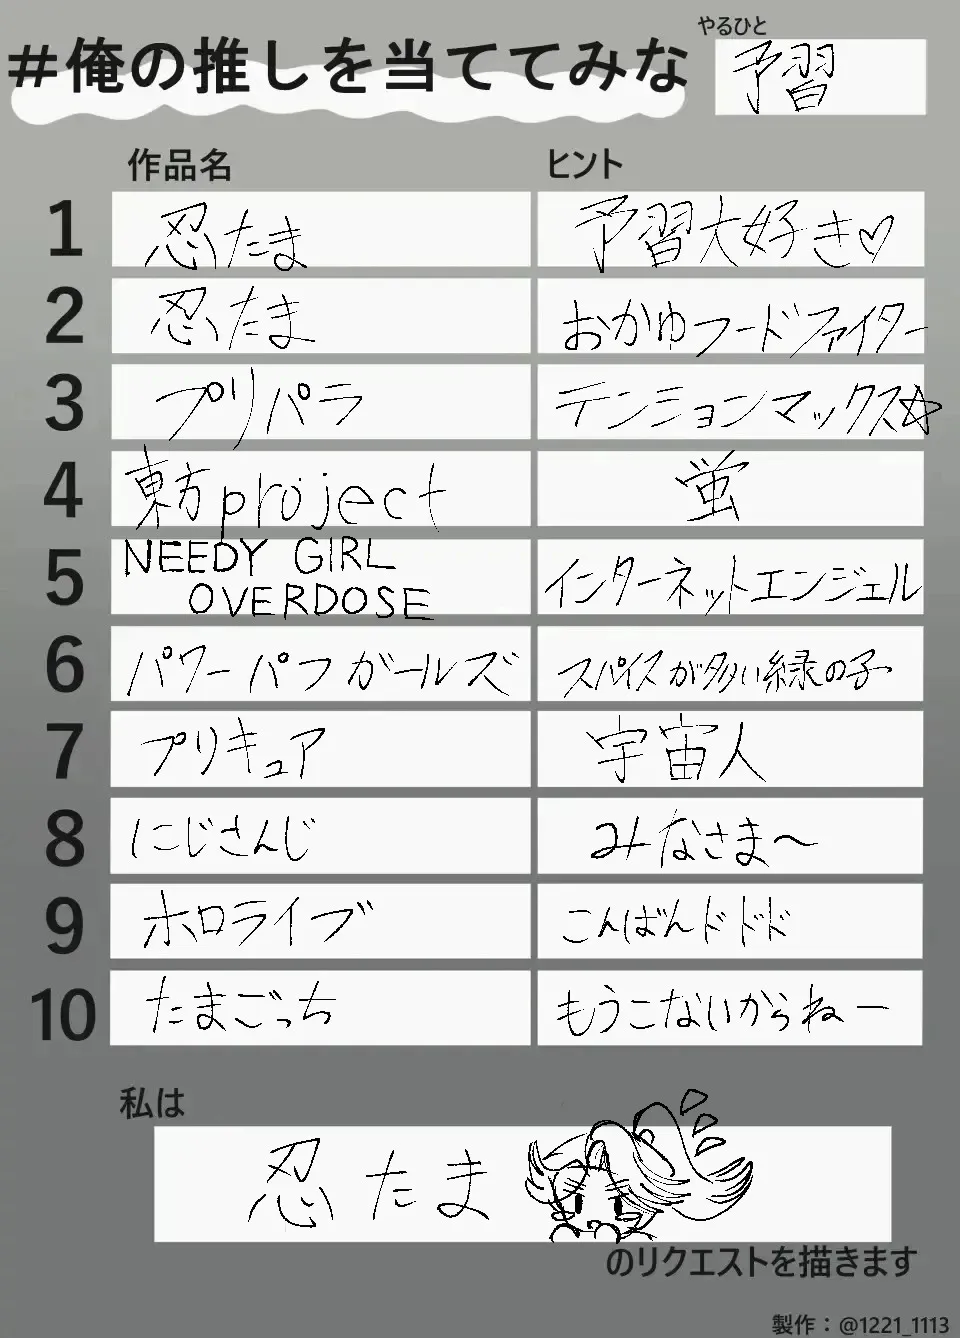 #俺の推しを当ててみな
やるひと
予習
作品名 ヒント
1 忍たま 予習大好き♡
2 忍たま おかゆフードファイター
3 プリパラ テンションマックス☆
4 東方project 蛍
5 NEEDY GIRL OVERDOSE インターネットエンジェル
6 パワーパフガールズ スパイスが多い緑の子
7 プリキュア 宇宙人
8 にじさんじ みなさま〜
9 ホロライブ こんばんドドド
10 たまごっち もうこないからねー
私は
忍たま
のリクエストを描きます
製作:@1221_1113